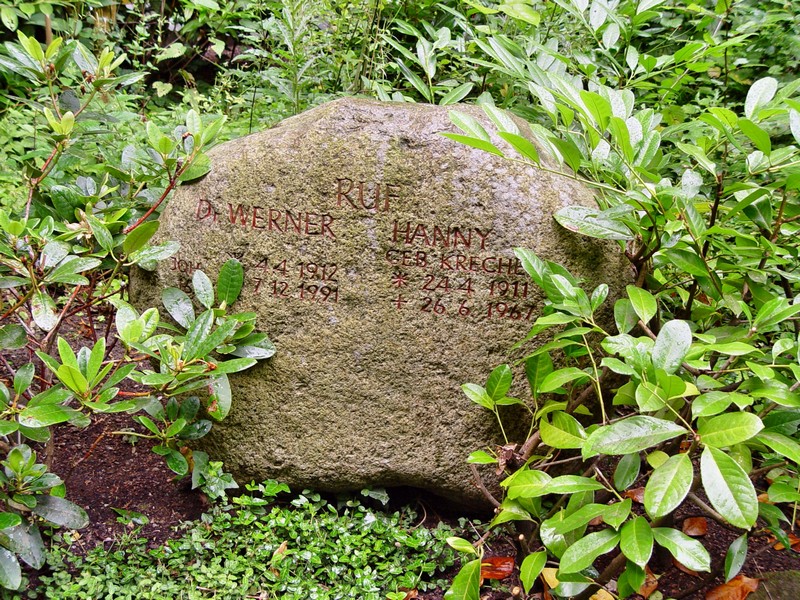 RUF
Dr WERNER
4 4 1912
7 12 1991
HANNY
GEB KRECHEL
* 24 4 1911
+ 26 6 1967